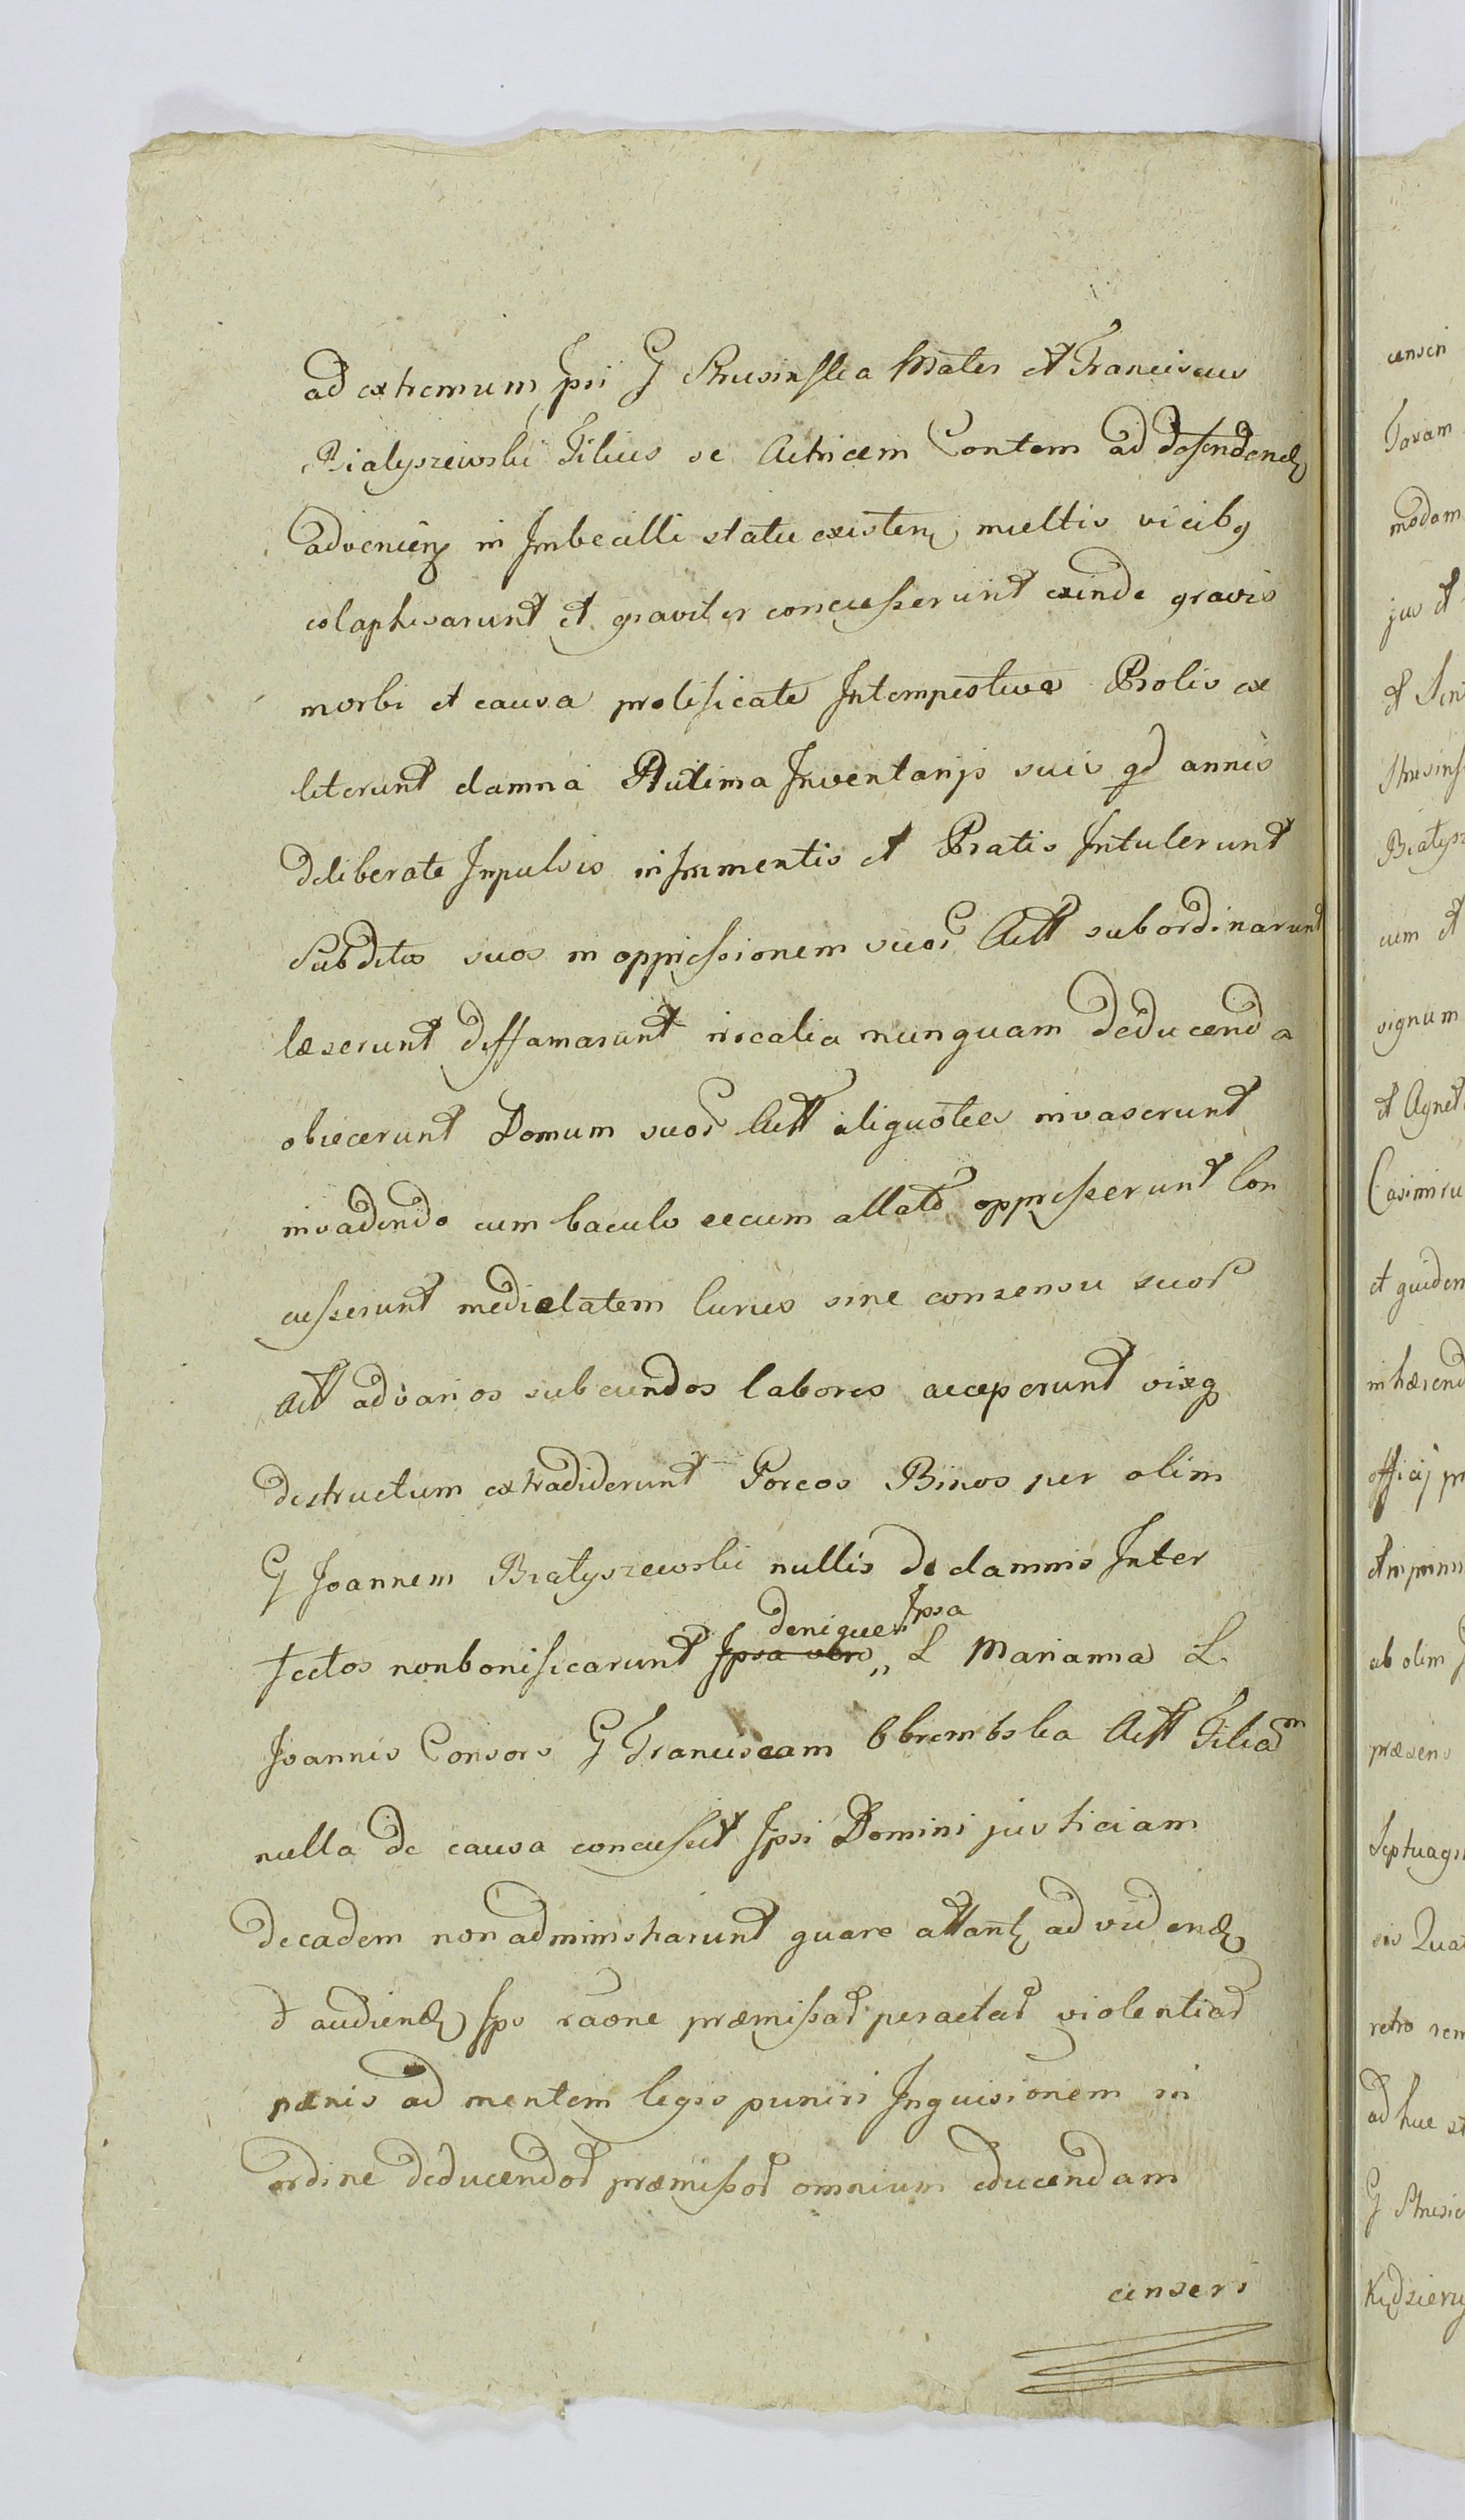 ad extremum Ipsi G Strusinska Mater et Franciscus
Białyszewski Filius se Actricem Contem ad defendend
advenien in Imbecilli statu existen multis vicibq
colaphisarunt et graviter concusserunt exinde gravis
morbi et causa prolificatę Intempestivę Prolis ex
literunt damna Plutima Inventarijs suis qd annis
deliberate Inpulsis in frumentis et Pratis Intulerunt
Subditos suos in oppressionem suor Actt subordinarunt
læserunt diffamarunt irocalia nunquam deducenda
obiecerunt Domum suor Actt aliquoties invaserunt
invadendo cum baculo secum allato oppresserunt Con
cusserunt medietatem Currus sine consensu suor
Actt ad varios subeundos labores acceperunt vixq
destructum extradiderunt Porcos Binos per olim
G Joannem Białyszewski nullis de damnis Inter
fectos non bonificarunt denique Ipsa L Marianna L
Joannis Consors G Franciscam Obrembska Actt Filiam
nulla de causa concussit Ipsi Domini justiciam
de eadem non administrarunt quare attant ad vidend
et audiend Ips raone præmissar peractar violentiar
pænis ad mentem legis puniri Inquisitionem in
ordine deducendor præmissor omnium educendam
censeri
censeri
Favam
modam
jus et
et Sen
Strusins
Białysz
cum et
signum
et Agnet
Casimiru
et quidem
inhærend
officij pr
et in primis
ab olim G
præsens
Septuagin
sis Qua
retro rem
ad huc st
G Strusic
Kędzieru